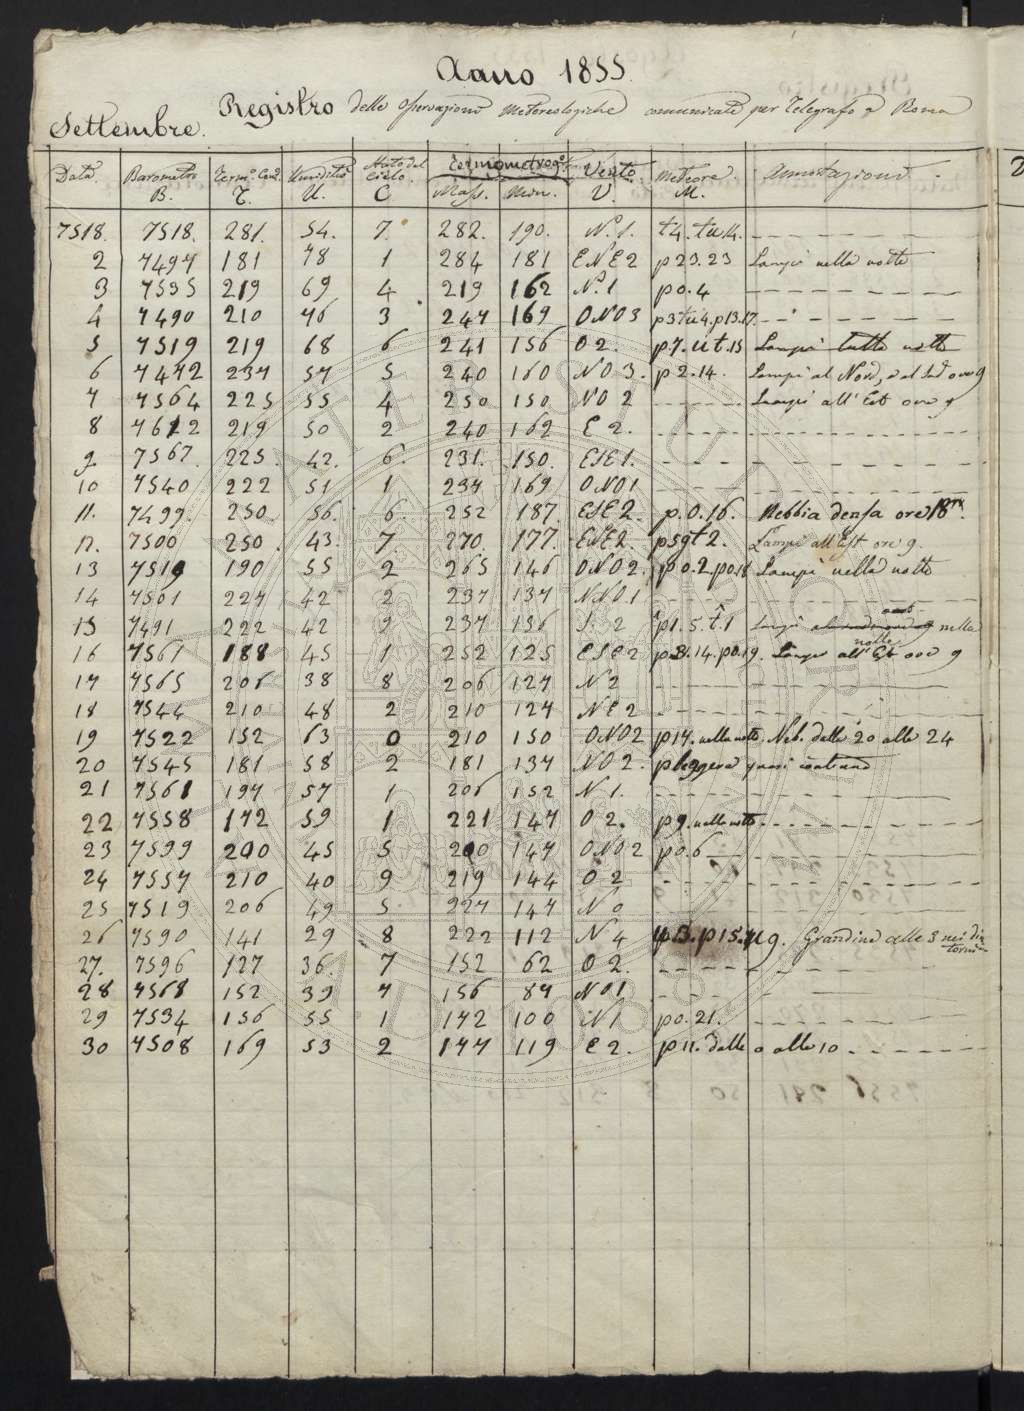 Anno 1855.
Registro delle Osservazioni Meteorologiche comunicate per Telegrafo a Roma
Settembre.
Data Barometro Term.º Cent. Umidità Stato del Cielo. Termometrogr. Vento Meteore Annotazioni
B. T. U. C Mass. Min. V. M.
7518. 7518. 281. 54. 7. 282. 190. N. 1. t4. tu14.
2 7497 181 78 1 284 181 ENE 2 p23.23 Lampi nella notte
3 7535 219 69 4 219 162 N. 1 p0.4
4 7490 210 76 3 247 169 ONO 3 p3tu4.p13.17
5 7519 219 68 6 241 156 O 2. p7.ut.15 Lampi tutta notte
6 7472 237 57 5 240 160 NO 3. p2.14. Lampi al Nord, e al Sud ore 9
7 7564 225 55 4 250 150 NO 2 Lampi all'Est ore 9
8 7622 219 50 2 240 162 E 2.
9. 7567. 225. 42. 6. 231. 150. ESE 1.
10 7540 222 51 1 237 169 ONO 1
11. 7499. 250. 56. 6. 252 187. ESE 2. p.0.16. Nebbia densa ore 18
12. 7500 250. 43. 7. 270. 177. ESE 2. p5gt2. Lampi all'Est ore 9.
13 7519 190 55 2 265 146 ONO 2. p0.2.p0.18 Lampi nella notte
14 7501 227 42 2 237 137 NNO 1
15 7491 222 42 9 237 136 S. 2 p1.5.t.1 Lampi nella notte
16 7561 188 45 1 252 125 ESE 2 p3.14.p0.19. Lampi all'Est ore 9
17 7565 206 38 8 206 127 N 2
18 7544 210 48 2 210 127 NE 2
19 7522 152 63 0 210 150 ONO 2 p17. nella notte. Neb. dalle 20 alle 24
20 7545 181 58 2 181 137 NO 2. p leggera quasi continua
21 7561 197 57 1 206 152 N 1.
22 7558 172 59 1 221 147 O 2. p9. nella notte
23 7599 200 45 5 200 147 ONO 2 p0.6
24 7557 210 40 9 219 144 O 2
25 7519 206 49 5. 227 147 N 0
26 7590 141 29 8 222 112 N 4 p15. Grandine alle 3 nei dintorni
27. 7596 127 36. 7 152 62 O 2.
28 7568 152 39 7 156 87 NO 1
29 7534 156 55 1 172 100 N 1 p0.21.
30 7508 169 53 2 177 119 E 2. p11. dalle 0 alle 10